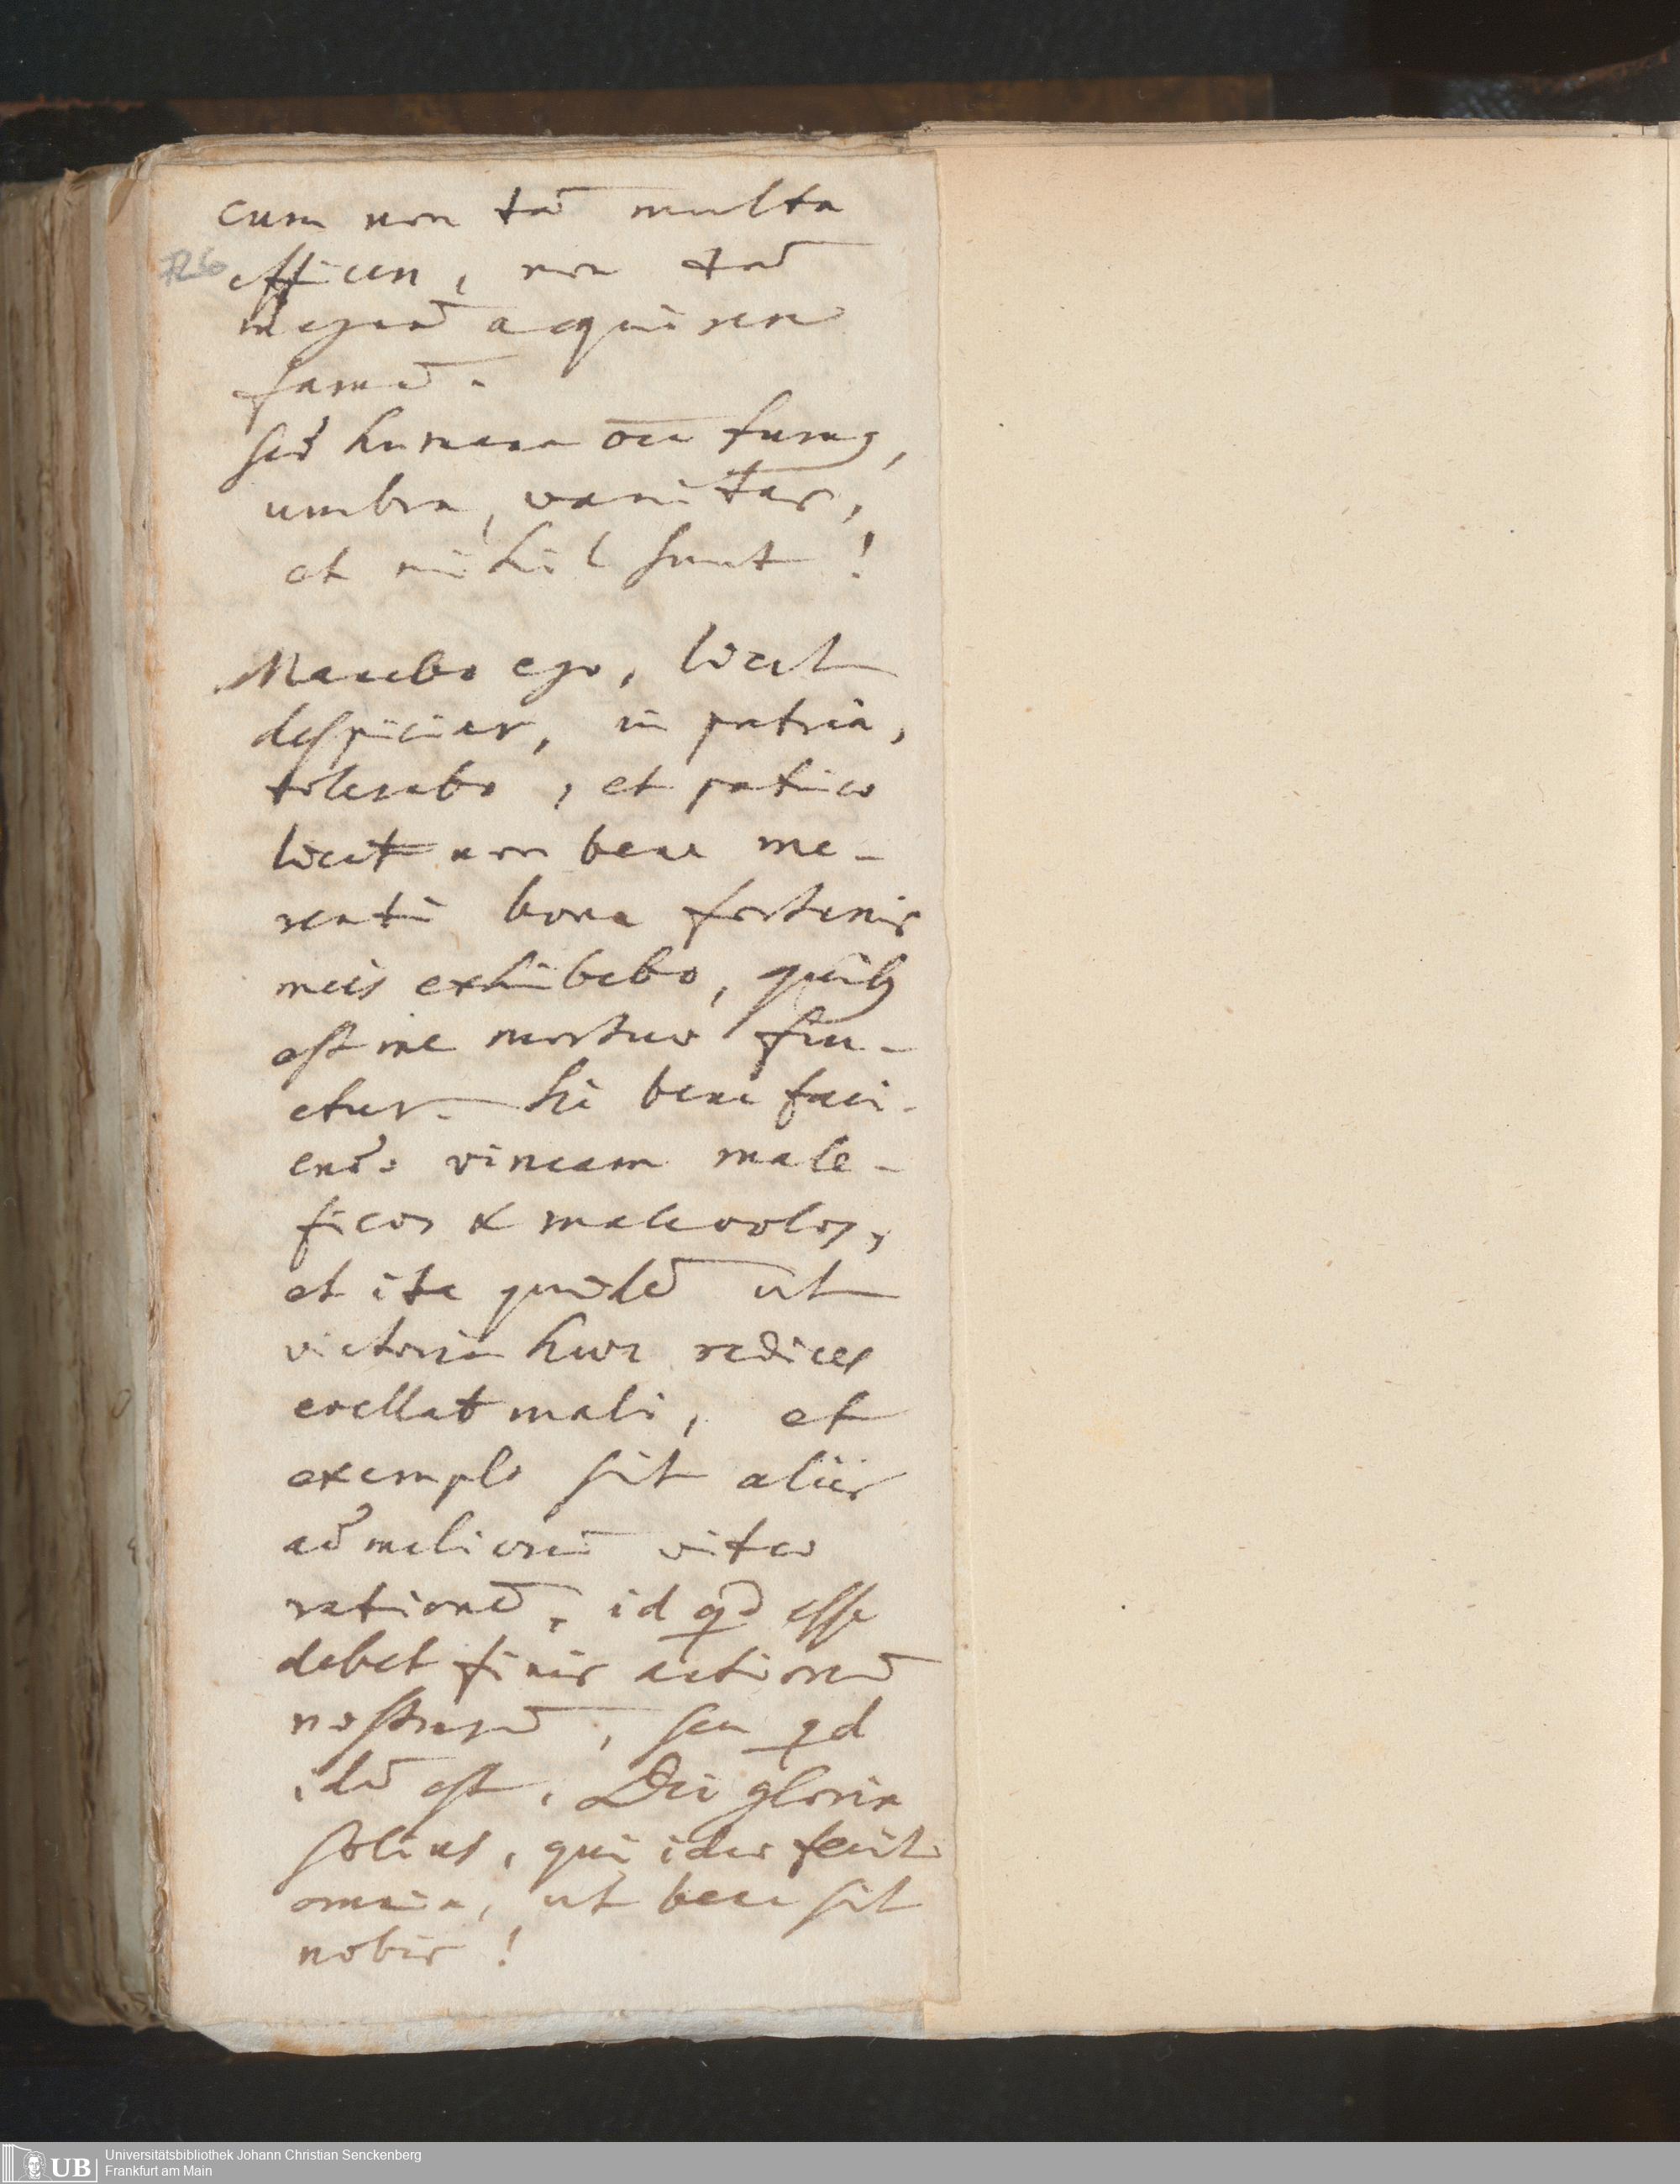 cum non tā multa
efficere, non tā
magnā acquirere
famā.
sed humana oīa fumus,
umbra, vanitas,
et nihil sunt!
Manebo ego, licet
despiciar, in patria,
tolerabo, et patriae
licet non bene me-
renti bona fortunis
meis exhibebo, quibus
est me mortuo fru-
etur. Si bene faci-
endo vincam male-
ficos & malevolos,
et ita quidē ut
victoria haec radices
evellat mali, et
exemplo sit aliis
ad meliorē vitae
rationē, id qd esse
debet finis actionū
nostrarū, seu qd
idē est, Dei gloria
solius, qui ideo fecit
omnia, ut bene sit
nobis!
Universitätsbibliothek Johann Christian Senckenberg
Frankfurt am Main
UB